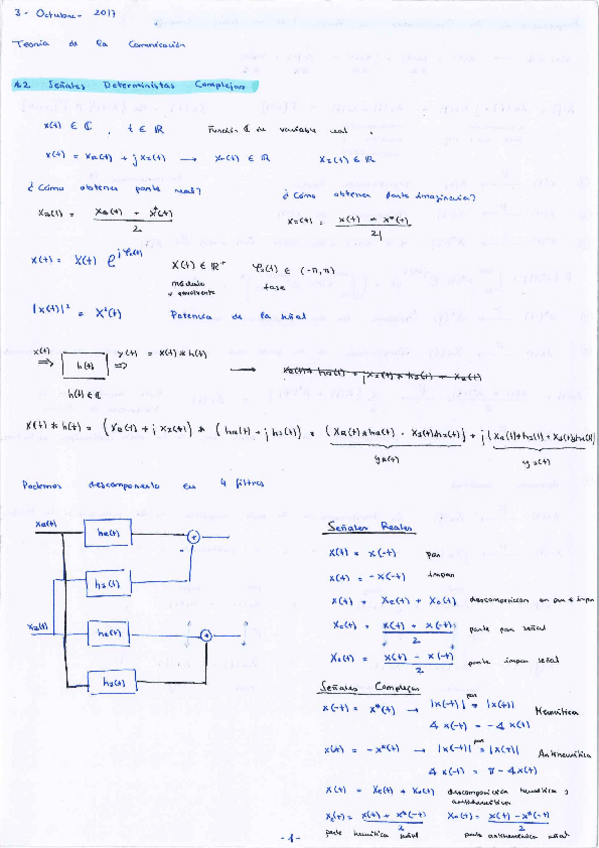 3 - Octubre - 2017
Teoría de la Comunicación
1.2. Señales Deterministas Complejas
x(t) ∈ ℂ , t ∈ ℝ Función ℂ de variable real.
x(t) = x_R(t) + j x_I(t) → x_R(t) ∈ ℝ x_I(t) ∈ ℝ
¿Cómo obtener parte real? ¿Cómo obtener parte imaginaria?
x_R(t) = (x(t) + x*(t))/2 x_I(t) = (x(t) - x*(t))/2j
x(t) = X(t) e^{jφ_x(t)} X(t) ∈ ℝ⁺ φ_x(t) ∈ (-π, π)
módulo fase
o envolvente
|x(t)|² = X²(t) Potencia de la señal
x(t) ⇒ h(t) ⇒ y(t) = x(t) * h(t) →
h(t) ∈ ℂ
x(t) * h(t) = (x_R(t) + j x_I(t)) * (h_R(t) + j h_I(t)) = (x_R(t) * h_R(t) - x_I(t) * h_I(t)) + j (x_R(t) * h_I(t) + x_I(t) * h_R(t))
y_R(t) y_I(t)
Podemos descomponerlo en 4 filtros
x_R(t) h_R(t) +
-
h_I(t)
x_I(t) h_R(t) +
h_I(t)
Señales Reales
x(t) = x(-t) par
x(t) = -x(-t) impar
x(t) = x_e(t) + x_o(t) descomposición en par e impar
x_e(t) = (x(t) + x(-t))/2 parte par señal
x_o(t) = (x(t) - x(-t))/2 parte impar señal
Señales Complejas
x(-t) = x*(t) → |x(-t)| = |x(t)| par Hermítica
∡ x(-t) = -∡ x(t)
x(t) = -x*(-t) → |x(-t)| = |x(t)| par Antihermítica
∡ x(-t) = π - ∡ x(t)
descomposición hermítica y
antihermítica
parte hermítica señal parte antihermítica señal
- 1 -